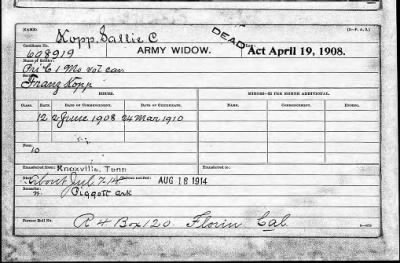 NAME: (3-P. A. 2.)
Kopp, Sallie C
Certificate No. ARMY WIDOW. DEAD Act April 19, 1908.
698919
Name of Soldier:
Pri C 1 Mo vol cav
Franz Kopp
ISSUES. MINORS—$2 PER MONTH ADDITIONAL.
CLASS. RATE. DATE OF COMMENCEMENT. DATE OF CERTIFICATE. NAME. COMMENCING. ENDING.
12 2 June 1908 24 Mar 1910
10
Transferred from Knoxville, Tenn
About Jul 7-14 AUG 18 1914
Piggott Ark
Former Roll No. R 4 Box 120 Florin Cal